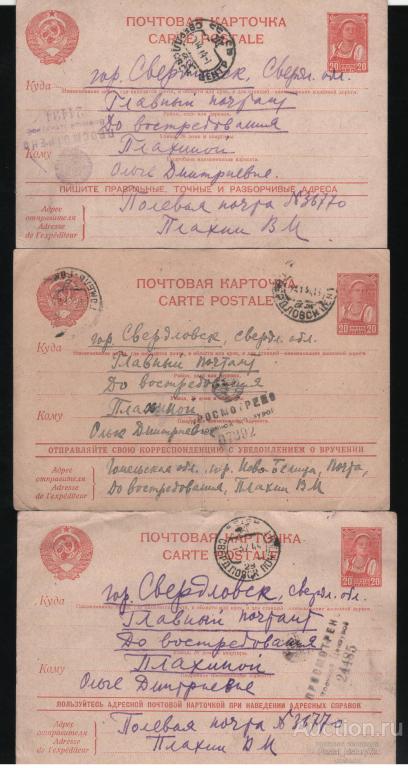 ПОЧТОВАЯ КАРТОЧКА
CARTE POSTALE
20 20
Куда гор. Свердловск, Свердл. обл.
Главный почтамт
До востребования
ПРОСМОТРЕНО
Кому Плахиной
Ольге Дмитриевне.
ПИШИТЕ ПРАВИЛЬНЫЕ, ТОЧНЫЕ И РАЗБОРЧИВЫЕ АДРЕСА
Адрес отправителя
Adresse de l'expéditeur
Полевая почта №36770
Плахин ВМ
ПОЧТОВАЯ КАРТОЧКА
CARTE POSTALE
20 20
Куда гор. Свердловск, свердл. обл.
Главный почтамт
До востребования
Кому Плахиной
ПРОСМОТРЕНО
Ольге Дмитриевне
07392
ОТПРАВЛЯЙТЕ СВОЮ КОРРЕСПОНДЕНЦИЮ С УВЕДОМЛЕНИЕМ О ВРУЧЕНИИ
Адрес отправителя
Adresse de l'expéditeur
Гомельская обл. гор. Ново-Белица, Почта,
До востребования, Плахин ВМ
ПОЧТОВАЯ КАРТОЧКА
CARTE POSTALE
20 20
Куда гор. Свердловск, Свердл. обл.
Главный почтамт
До востребования
Кому Плахиной
Ольге Дмитриевне
24485
ПОЛЬЗУЙТЕСЬ АДРЕСНОЙ ПОЧТОВОЙ КАРТОЧКОЙ ПРИ НАВЕДЕНИИ АДРЕСНЫХ СПРАВОК
Адрес отправителя
Adresse de l'expéditeur
Полевая почта №36770
Плахин ВМ
Auction.ru